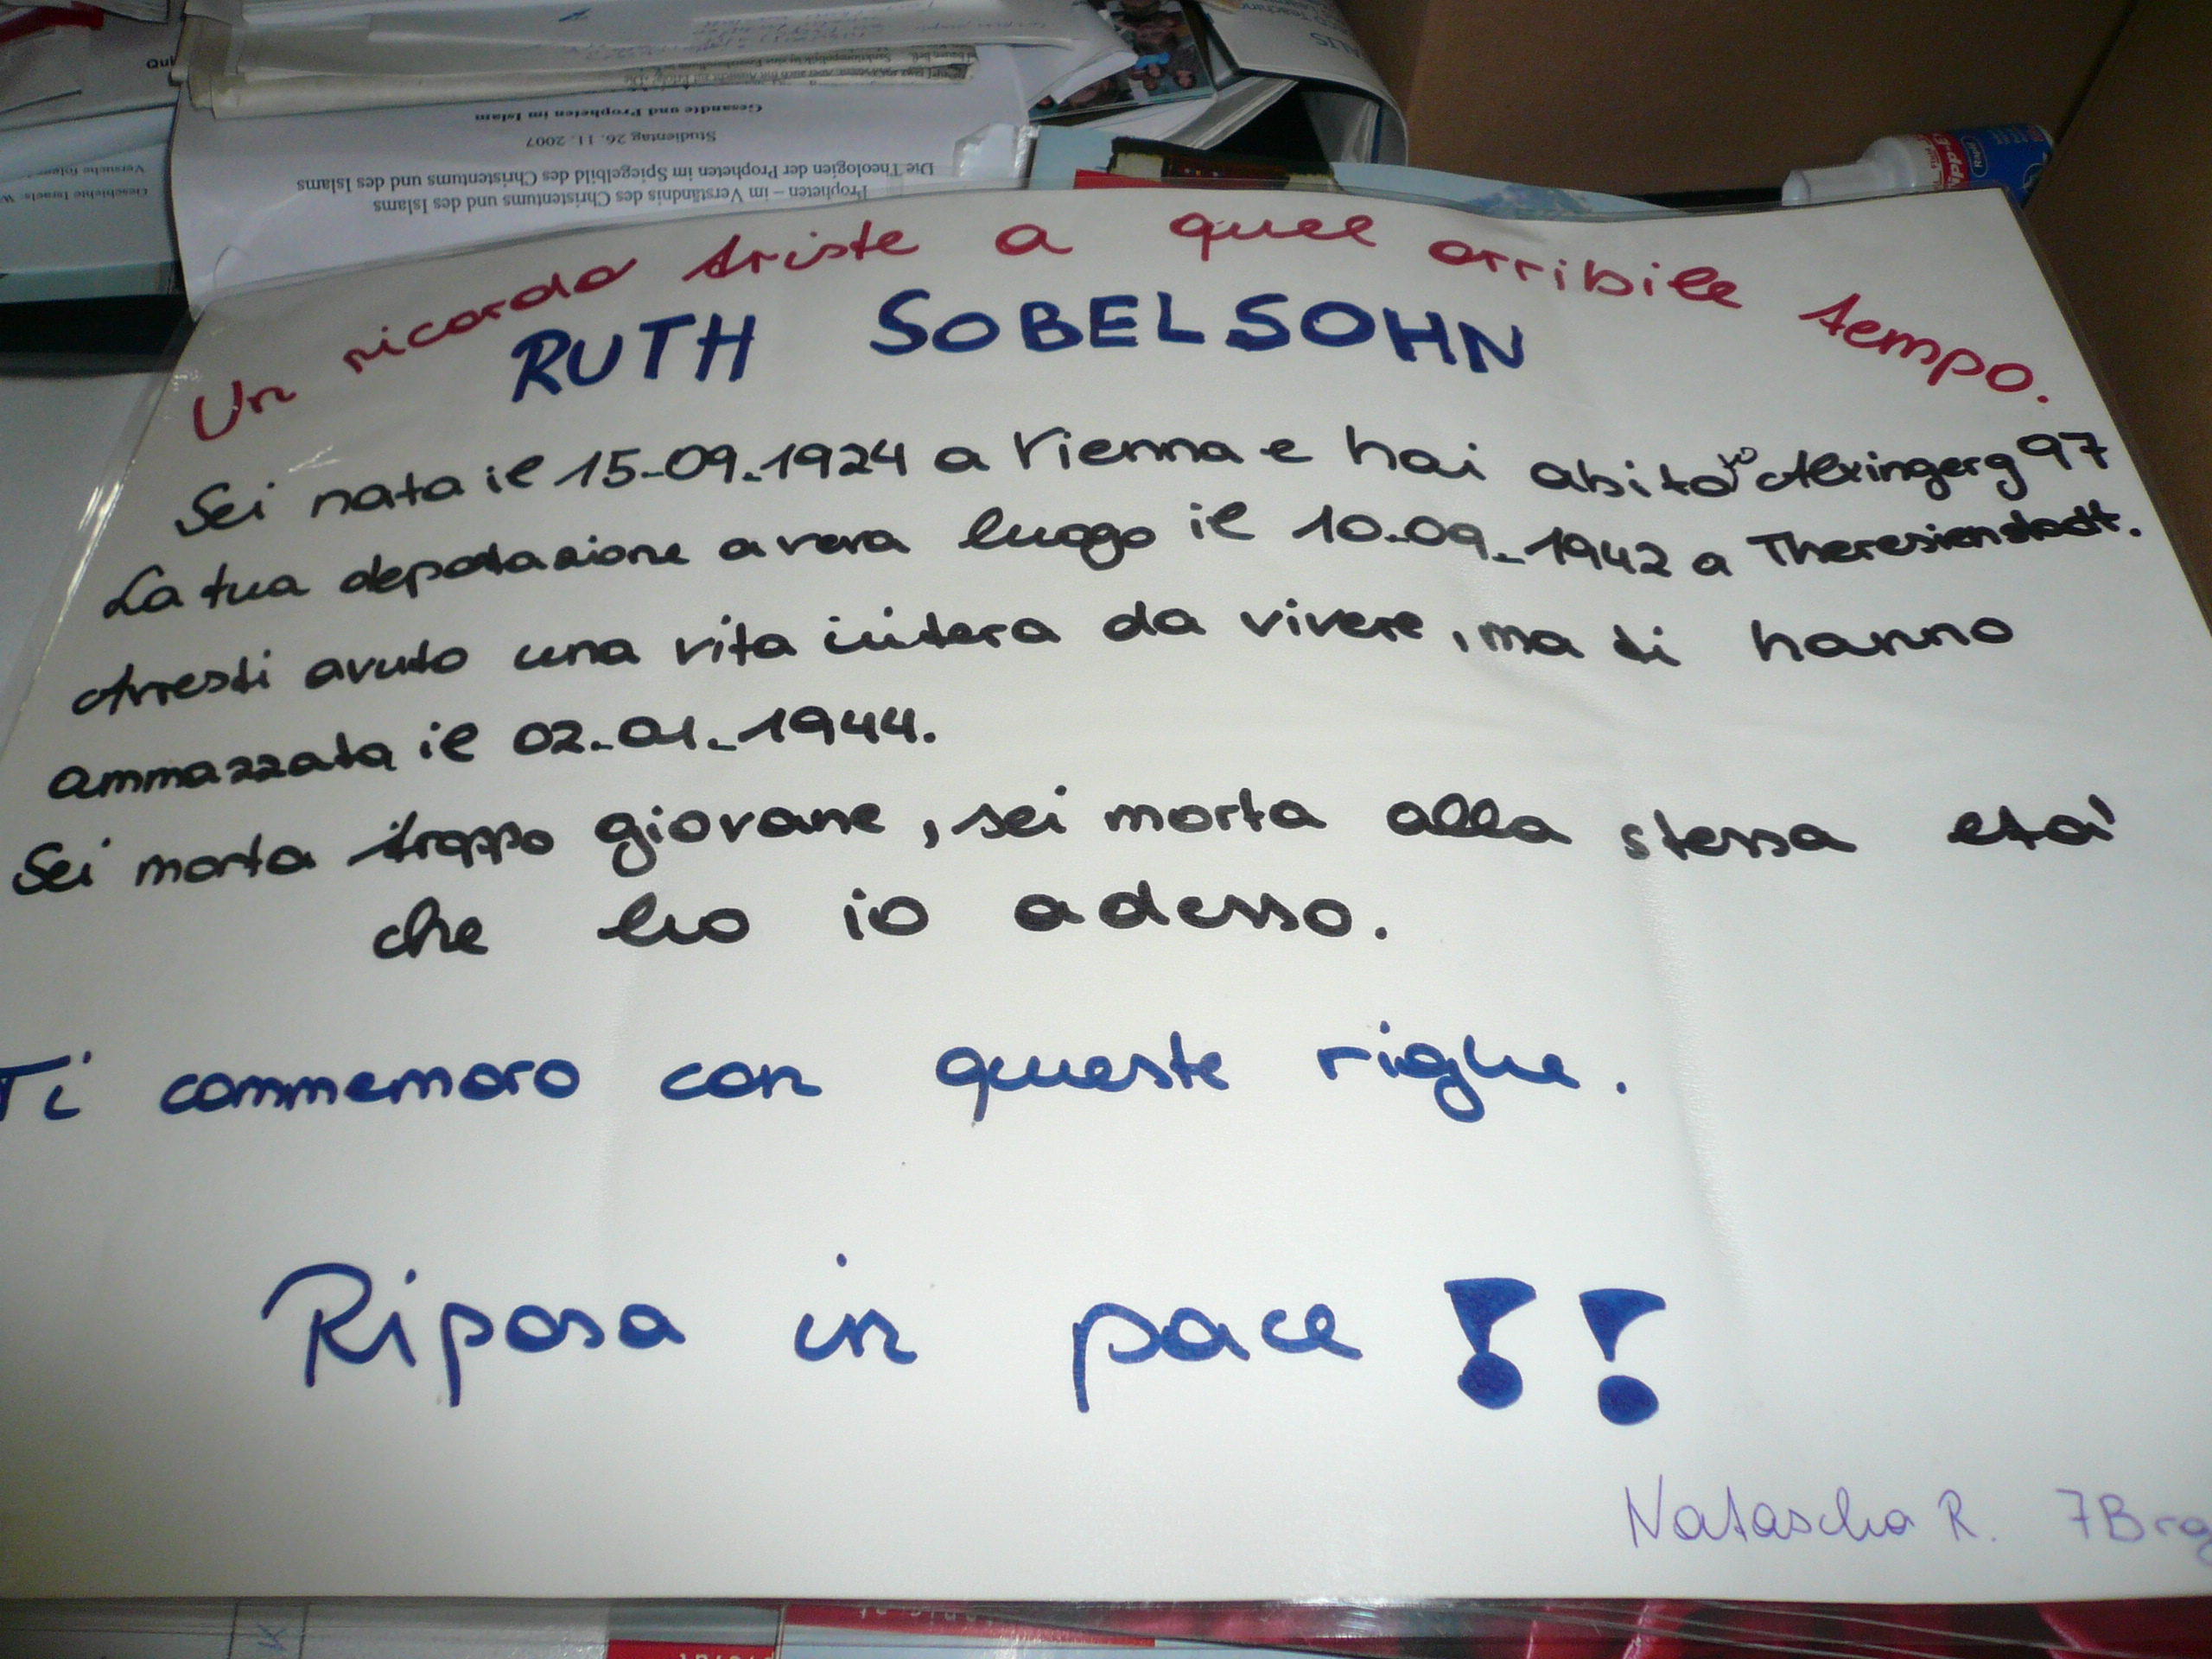 Qui
Gesandte und Propheten im Islam
Studientag 26. 11. 2007
Die Theologien der Propheten im Spiegelbild des Christentums und des Islams
Propheten – im Verständnis des Christentums und des Islams
Versuche
Geschichte Israels
Un ricordo triste a quel orribile tempo.
RUTH SOBELSOHN
Sei nata il 15-09-1924 a Vienna e hai abitato Alxingerg 97
La tua deportazione aveva luogo il 10-09-1942 a Theresienstadt.
Avresti avuto una vita intera da vivere, ma ti hanno
ammazzata il 02-01-1944.
Sei morta troppo giovane, sei morta alla stessa età
che ho io adesso.
Ti commemoro con queste righe.
Riposa in pace !!
Natascha R. 7Brg